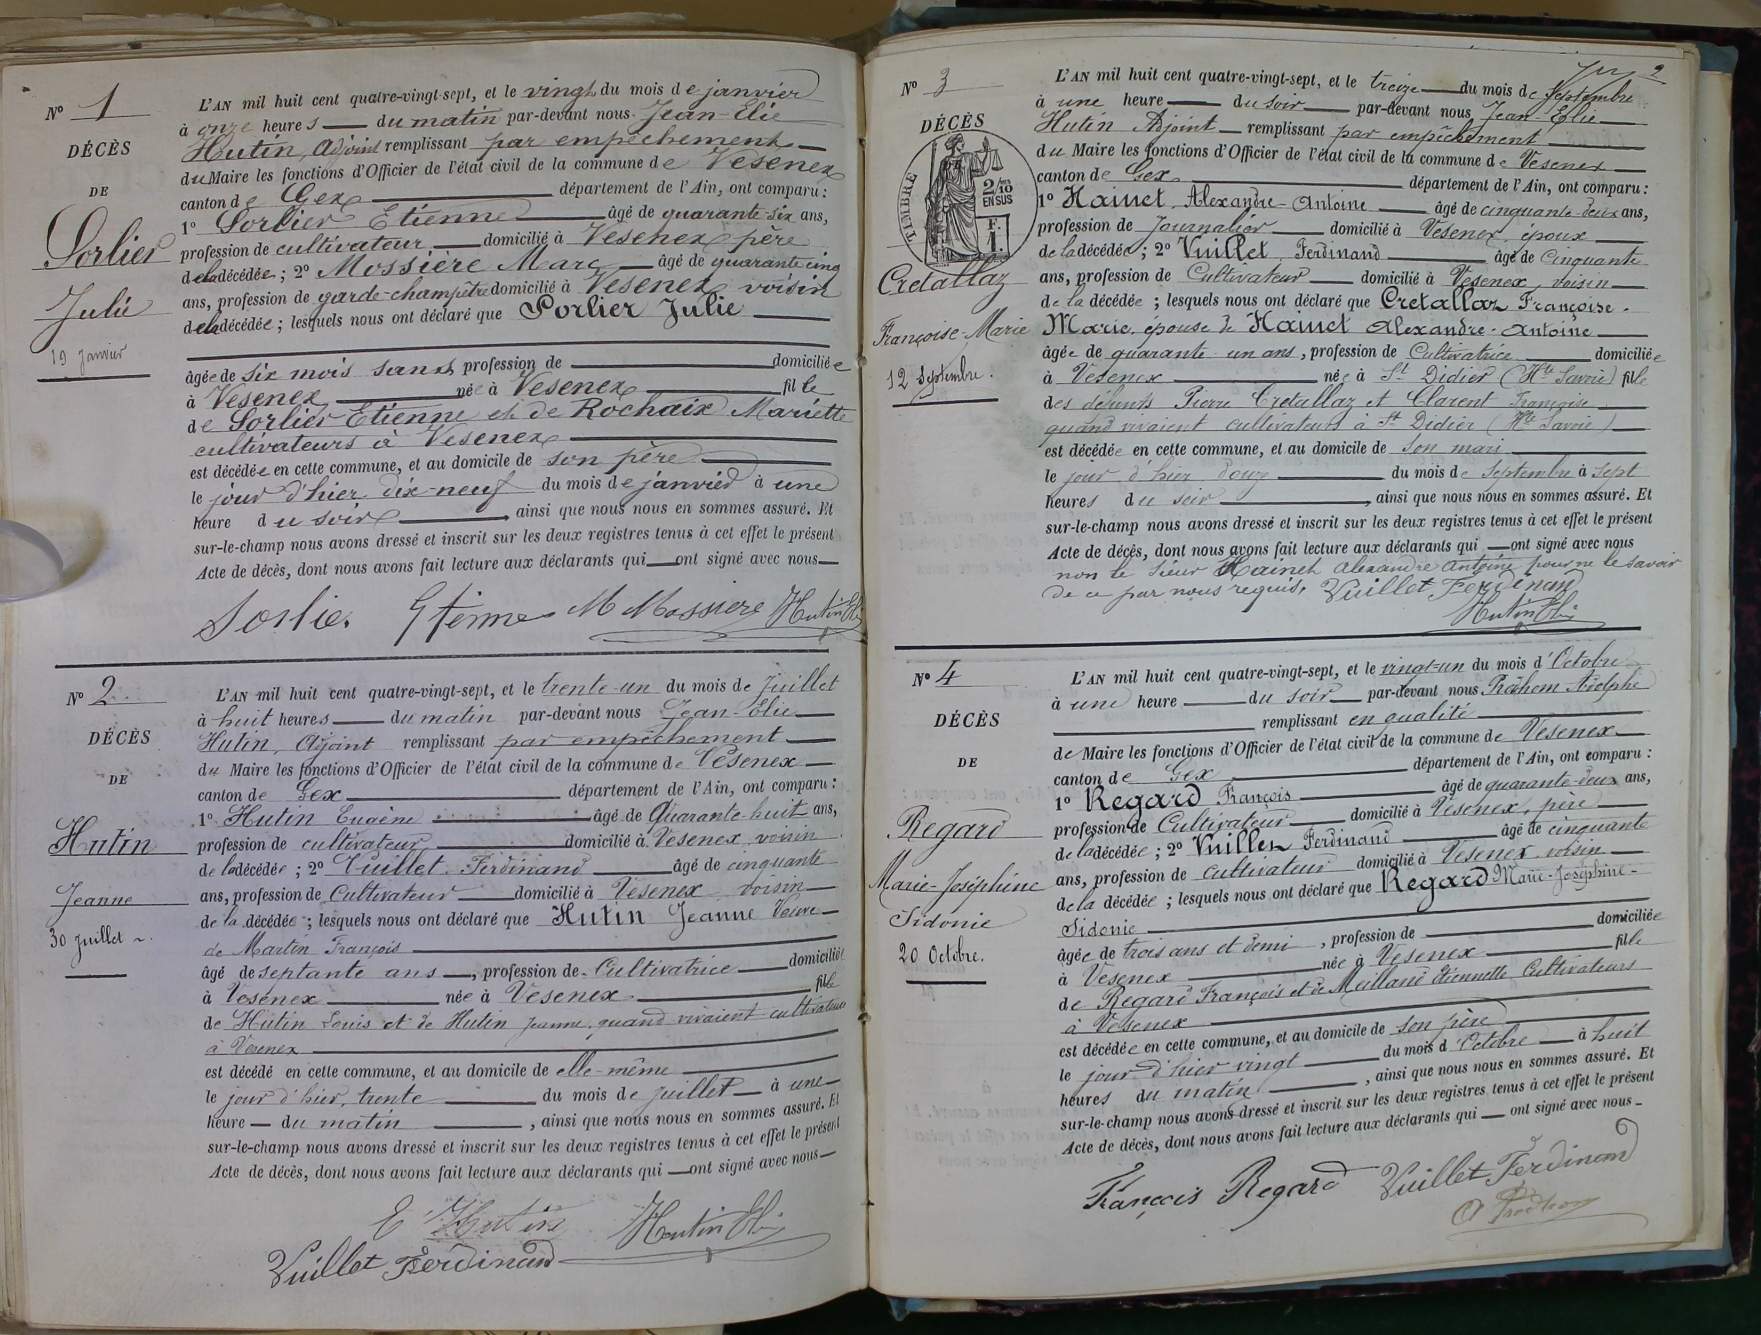 N° 1
DÉCÈS
DE
Sorlier
Julie
19 Janvier
L'AN mil huit cent quatre-vingt-sept, et le vingt du mois de janvier
à onze heures du matin par-devant nous Jean-Elie
Hutin, Adjoint remplissant par empêchement
du Maire les fonctions d'Officier de l'état civil de la commune de Vesenex
canton de Gex département de l'Ain, ont comparu :
1° Sorlier Etienne âgé de quarante-six ans,
profession de cultivateur domicilié à Vesenex père
de la décédée ; 2° Mossière Marc âgé de quarante cinq
ans, profession de garde-champêtre domicilié à Vesenex voisin
de la décédée ; lesquels nous ont déclaré que Sorlier Julie
âgée de six mois sans profession de domiciliée
à Vesenex née à Vesenex fille
de Sorlier Etienne et de Rochaix Mariette
cultivateurs à Vesenex
est décédée en cette commune, et au domicile de son père
le jour d'hier dix-neuf du mois de janvier à une
heure du soir, ainsi que nous nous en sommes assuré. Et
sur-le-champ nous avons dressé et inscrit sur les deux registres tenus à cet effet le présent
Acte de décès, dont nous avons fait lecture aux déclarants qui ont signé avec nous
Sorlier Etienne M Mossiere Hutin Eli
N° 2
DÉCÈS
DE
Hutin
Jeanne
30 Juillet
L'AN mil huit cent quatre-vingt-sept, et le trente-un du mois de Juillet
à huit heures du matin par-devant nous Jean-Elie
Hutin, Adjoint remplissant par empêchement
du Maire les fonctions d'Officier de l'état civil de la commune de Vesenex
canton de Gex département de l'Ain, ont comparu :
1° Hutin Eugène âgé de Quarante-huit ans,
profession de cultivateur domicilié à Vesenex voisin
de la décédée ; 2° Vuillet Ferdinand âgé de cinquante
ans, profession de Cultivateur domicilié à Vesenex voisin
de la décédée ; lesquels nous ont déclaré que Hutin Jeanne Veuve
de Martin François
âgé de septante ans, profession de Cultivatrice domiciliée
à Vesenex née à Vesenex fille
de Hutin Louis et de Hutin Jeanne, quand vivaient cultivateurs
à Vesenex
est décédé en cette commune, et au domicile de elle-même
le jour d'hier, trente du mois de juillet à une
heure du matin, ainsi que nous nous en sommes assuré. Et
sur-le-champ nous avons dressé et inscrit sur les deux registres tenus à cet effet le présent
Acte de décès, dont nous avons fait lecture aux déclarants qui ont signé avec nous
E Hutin Hutin Eli
Vuillet Ferdinand
2
N° 3
DÉCÈS
TIMBRE
2/10
EN SUS
F.
1.
Cretallaz
Françoise-Marie
12 Septembre.
L'AN mil huit cent quatre-vingt-sept, et le treize du mois de Septembre
à une heure du soir par-devant nous Jean-Elie
Hutin Adjoint remplissant par empêchement
du Maire les fonctions d'Officier de l'état civil de la commune de Vesenex
canton de Gex département de l'Ain, ont comparu :
1° Hainet Alexandre-Antoine âgé de cinquante-deux ans,
profession de Journalier domicilié à Vesenex époux
de la décédée ; 2° Vuillet Ferdinand âgé de Cinquante
ans, profession de Cultivateur domicilié à Vesenex, voisin
de la décédée ; lesquels nous ont déclaré que Cretallaz Françoise-
Marie, épouse de Hainet Alexandre-Antoine
âgée de quarante-un ans, profession de Cultivatrice domiciliée
à Vesenex née à St Didier (Hte Savoie) fille
des défunts Pierre Cretallaz et Clarent Françoise
quand vivaient cultivateurs à St Didier (Hte Savoie)
est décédée en cette commune, et au domicile de son mari
le jour d'hier douze du mois de Septembre à sept
heures du soir, ainsi que nous nous en sommes assuré. Et
sur-le-champ nous avons dressé et inscrit sur les deux registres tenus à cet effet le présent
Acte de décès, dont nous avons fait lecture aux déclarants qui ont signé avec nous
non le sieur Hainet Alexandre Antoine pour ne le savoir
de ce par nous requis. Vuillet Ferdinand
Hutin Eli
N° 4
DÉCÈS
DE
Regard
Marie-Joséphine
Sidonie
20 Octobre.
L'AN mil huit cent quatre-vingt-sept, et le vingt-un du mois d'Octobre
à une heure du soir par-devant nous Adolphe
remplissant en qualité
de Maire les fonctions d'Officier de l'état civil de la commune de Vesenex
canton de Gex département de l'Ain, ont comparu :
1° Regard François âgé de quarante-deux ans,
profession de Cultivateur domicilié à Vesenex, père
de la décédée ; 2° Vuillet Ferdinand âgé de cinquante
ans, profession de cultivateur domicilié à Vesenex voisin
de la décédée ; lesquels nous ont déclaré que Regard Marie-Joséphine-
Sidonie
âgée de trois ans et demi, profession de domiciliée
à Vesenex née à Vesenex fille
de Regard François et de Mulland Etiennette Cultivateurs
à Vesenex
est décédée en cette commune, et au domicile de son père
le jour d'hier vingt du mois d'Octobre à huit
heures du matin, ainsi que nous nous en sommes assuré. Et
sur-le-champ nous avons dressé et inscrit sur les deux registres tenus à cet effet le présent
Acte de décès, dont nous avons fait lecture aux déclarants qui ont signé avec nous
François Regard Vuillet Ferdinand